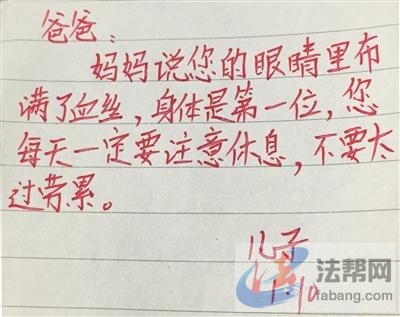 爸爸：
妈妈说您的眼睛里布
满了血丝，身体是第一位，您
每天一定要注意休息，不要太
过劳累。
儿子
1.10
法帮网
fabang.com